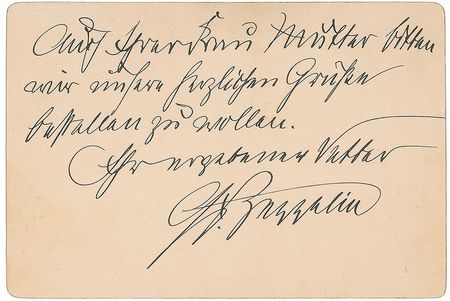 Auch Ihrer Frau Mutter bitten
wir unsere herzlichen Grüße
bestellen zu wollen.
Ihr ergebener Vetter
Gf. Zeppelin